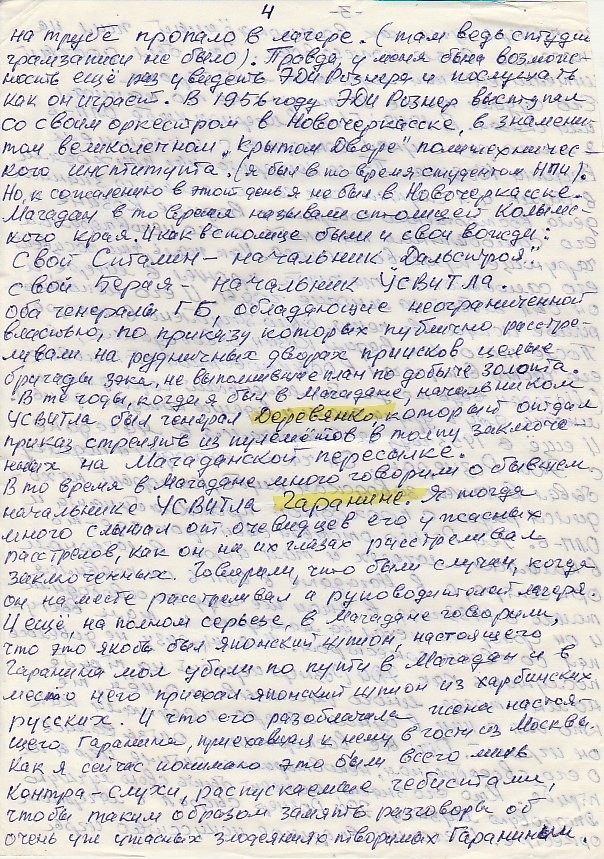 4
на трубе пропало в лагере. (там ведь студии
грамзаписи не было). Правда, у меня была возмож-
ность ещё раз увидеть Эди Рознера и послушать
как он играет. В 1956 году Эди Рознер выступал
со своим оркестром в Новочеркасске, в знамени-
том великолепном „Крытом Дворе" политехничес-
кого института. (я был в то время студентом НПИ).
Но, к сожалению в этот день я не был в Новочеркасске.
Магадан в то время называли столицей Колымс-
кого края. И как в столице были и свои вожди:
Свой Сталин – начальник „Дальстроя".
свой Берия – начальник УСВИТЛа.
оба генералы ГБ, обладающие неограниченной
властью, по приказу которых публично расстре-
ливали на рудничных дворах приисков целые
бригады зэка, не выполнившие план по добыче золота.
В те годы, когда я был в Магадане, начальником
УСВИТЛа был генерал Деревянко, который отдал
приказ стрелять из пулемётов в толпу заключе-
нных на Магаданской пересылке.
В то время в Магадане много говорили о бывшем
начальнике УСВИТЛа Гаранине. Я тогда
много слышал от очевидцев его ужасных
расстрелов, как он на их глазах расстреливал
заключенных. Говорили, что были случаи, когда
он, на месте расстреливал а руководителей лагеря.
И ещё, на полном серьезе, в Магадане говорили,
что это якобы был японский шпион, настоящего
Гаранина мол убили по пути в Магадан и в
место него приехал японский шпион из харбинских
русских. И что его разоблачила жена настоя-
щего Гаранина, приехавшая к нему в гости из Москвы.
Как я сейчас понимаю это были всего лишь
контра-слухи, распускаемые гебистами,
чтобы таким образом замять разговоры об
очень уж ужасных злодеяниях творимых Гараниным.